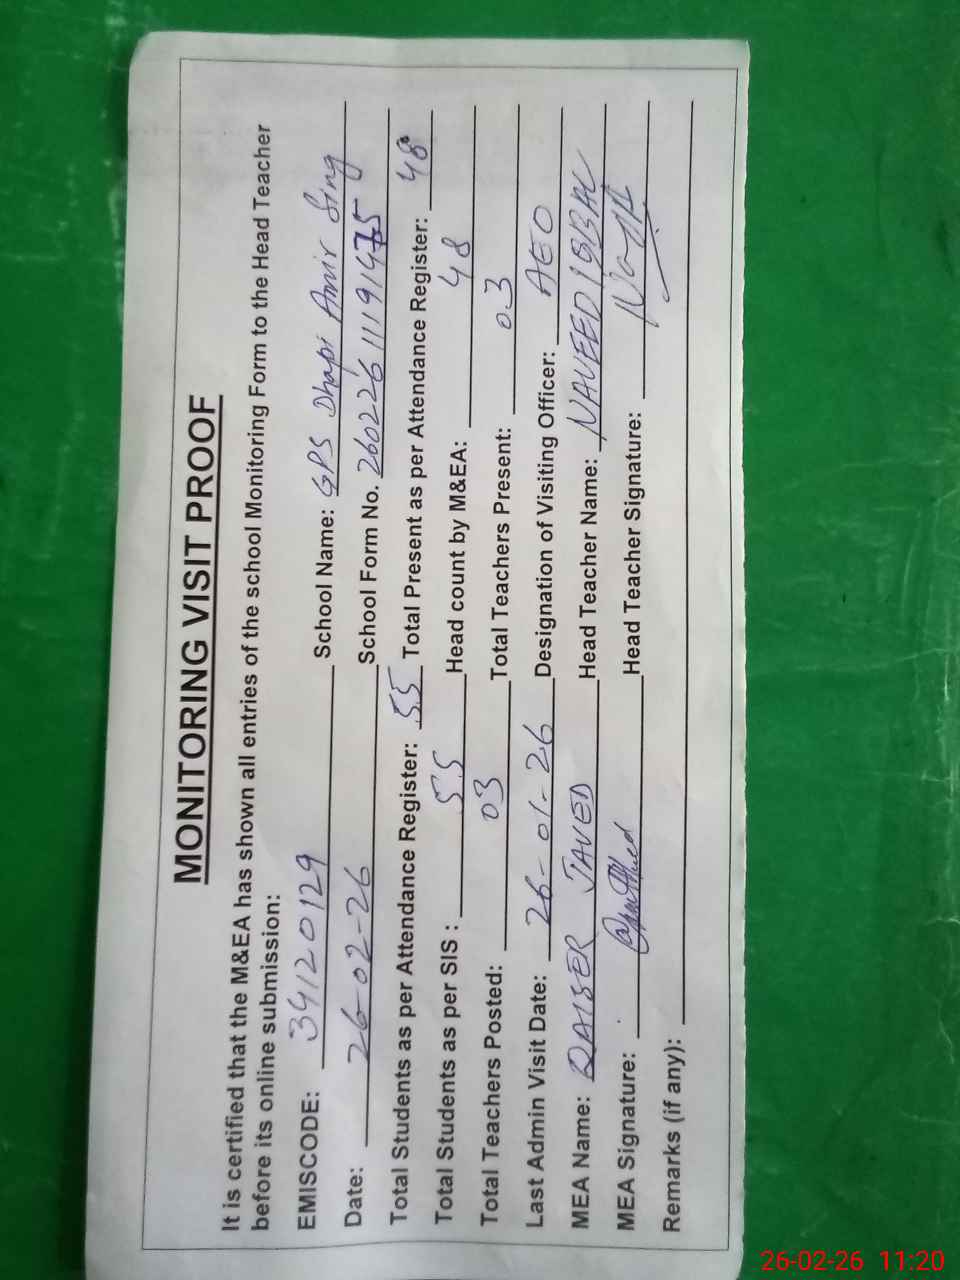 MONITORING VISIT PROOF
It is certified that the M&EA has shown all entries of the school Monitoring Form to the Head Teacher
before its online submission:
EMISCODE: 34120129 School Name: GPS Dhapi Amir Sing
Date: 26-02-26 School Form No. 260226111191475
Total Students as per Attendance Register: 55 Total Present as per Attendance Register: 48
Total Students as per SIS : 55 Head count by M&EA: 48
Total Teachers Posted: 03 Total Teachers Present: 03
Last Admin Visit Date: 26-01-26 Designation of Visiting Officer: AEO
MEA Name: QAISER JAVED Head Teacher Name: NAVEED IQBAL
MEA Signature: Head Teacher Signature:
Remarks (if any):
26-02-26 11:20